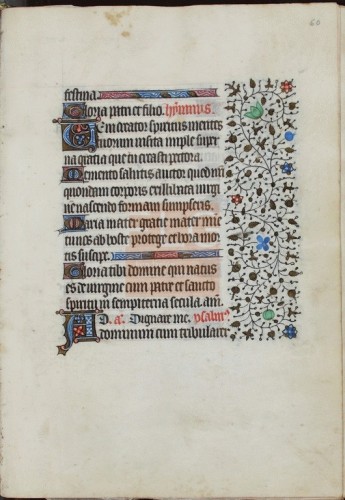 60
festina.
Gloria patri et filio. Hymnus.
Veni creator spiritus mentes
tuorum visita imple super
na gratia que tu creasti pectora.
Memento salutis auctor quod nri
quondam corporis ex illibata virgi
ne nascendo formam sumpseris.
Maria mater gratie mater mi
tu nos ab hoste protege et hora mor
tis suscipe.
Gloria tibi domine qui natus
es de virgine cum patre et sancto
spiritu in sempiterna secula. am.
a. Dignare me. psalm
Ad dominum cum tribularer